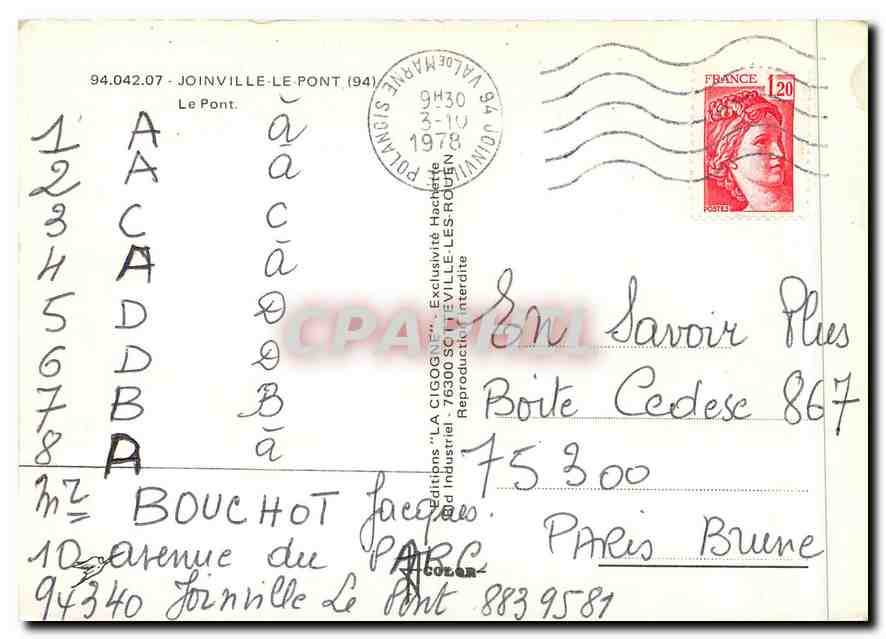 94.042.07 - JOINVILLE-LE-PONT (94)
Le Pont.
94 JOINVILLE
VAL DE MARNE
9H30
3-IV
1978
FRANCE 1,20
POSTES
1 A ă
2 A ā
3 C C
4 A ā
5 D D
6 D D
7 B B
8 A ā
Mr BOUCHOT Jacques.
10 avenue du PARC
94340 Joinville Le Pont 8839581
Editions "LA CIGOGNE" - Exclusivité Hachette
Bld Industriel - 76300 SOTTEVILLE-LES-ROUEN
Reproduction interdite
COLOR
CPARAMA
En Savoir Plus
Boite Cedesc 867
75300
PARIS Brune